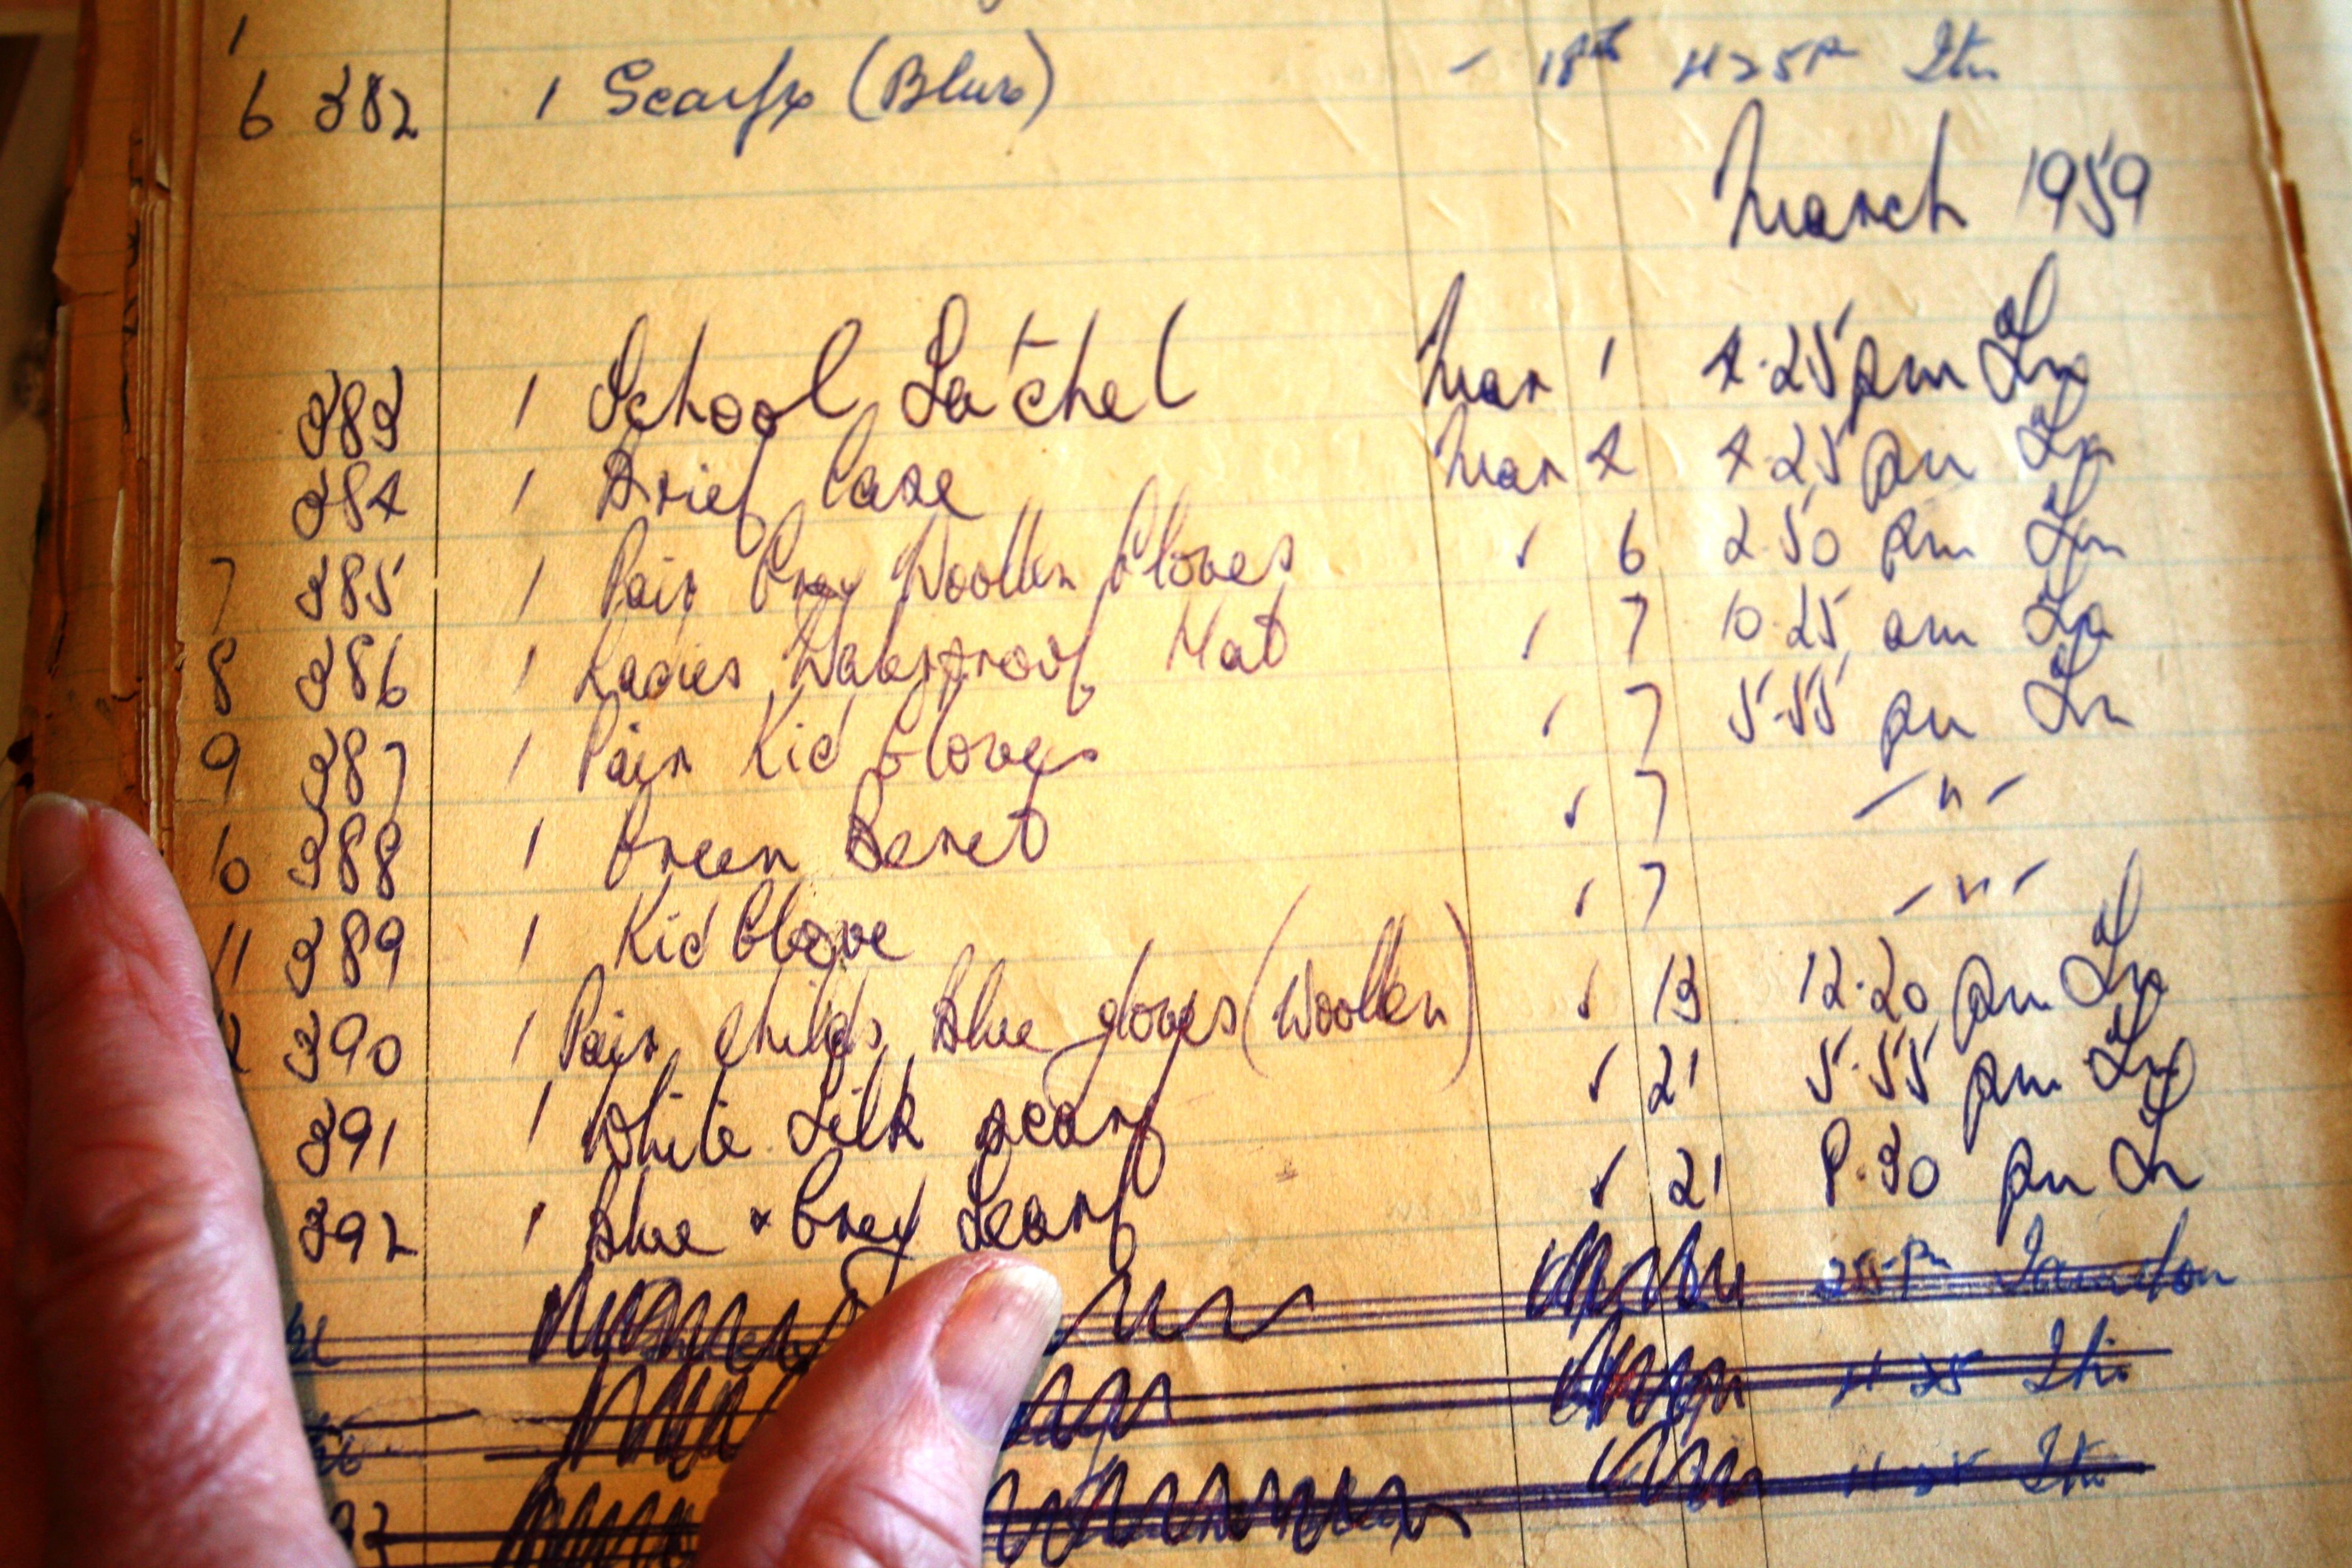 1
6 382 1 Scarfe (Blue) - 18th 4 25 P
March 1959
383 1 School Satchel Mar 1 4.25 pm Ln
384 1 Brief Case Mar 4 4.25 pm Ln
7 385 1 Pair Grey Woollen Gloves " 6 2.50 pm Ln
8 386 1 Ladies Waterproof Hat " 7 10.25 am Ln
9 387 1 Pair Kid Gloves " 7 5.55 pm Ln
10 388 1 Green Beret " 7 - " -
11 389 1 Kid Glove " 7 - " -
390 1 Pair childs Blue gloves (Woollen) " 13 12.20 pm Ln
391 1 White Silk scarf " 21 5.55 pm Ln
392 1 Blue & Grey Scarf " 21 8.30 pm Ln